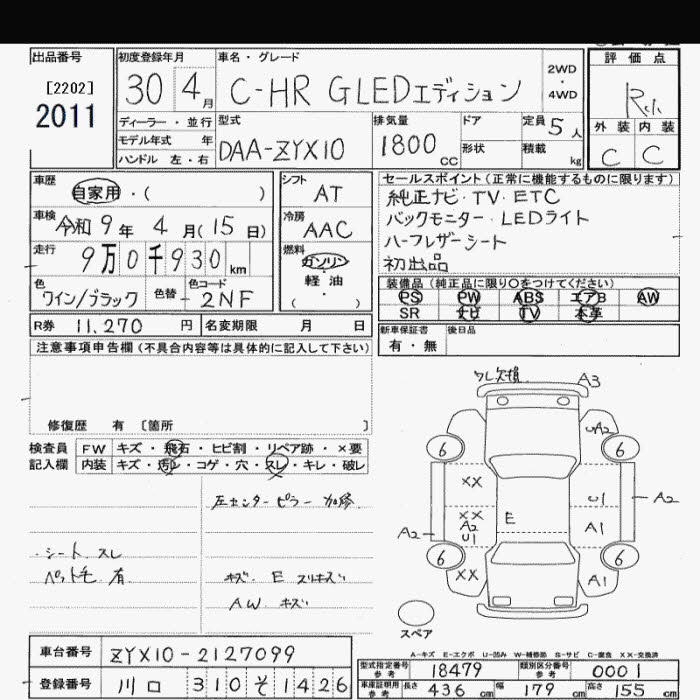 出品番号
[2202]
2011
初度登録年月
30 4月
車名・グレード
C-HR GLEDエディション
2WD
・
4WD
評価点
外装 内装
C C
ディーラー・並行
モデル年式 年
ハンドル 左・右
型式
DAA-ZYX10
排気量
1800cc
ドア
形状
定員 5人
積載 kg
車歴
自家用・( )
車検 令和9年 4月(15日)
走行
9万0千930km
色
ワイン/ブラック
色替
色コード
2NF
シフト
AT
冷房
AAC
燃料
ガソリン
軽油
・
( )
セールスポイント(正常に機能するものに限ります)
純正ナビ・TV・ETC
バックモニター・LEDライト
ハーフレザーシート
初出品
装備品(純正品に限り○をつけてください)
PS PW ABS エアB AW
SR ナビ TV 本革
R券 11,270円
名変期限 月 日
新車保証書
有・無
後日品
注意事項申告欄(不具合内容等は具体的に記入して下さい)
修復歴 有 〔箇所 〕
検査員
記入欄
FW キズ・飛石・ヒビ割・リペア跡・×要
内装 キズ・汚レ・コゲ・穴・スレ・キレ・破レ
左センターピラー 加修
・シート スレ
ペット毛 有
キズ E スリキズ
AW キズ
A3
UA2
6 6
XX
U1
A2
XX
A2
U1
E
A1
A2
6 6
XX
A1
スペア
A-キズ E-エクボ U-凹み W-補修跡 S-サビ C-腐食 XX-交換済
車台番号 ZYX10-2127099
登録番号 川口 310 そ 1426
型式指定番号
参考
18479
類別区分番号
参考
0001
車庫証明用
参考
長さ 436cm 幅 179cm 高さ 155cm